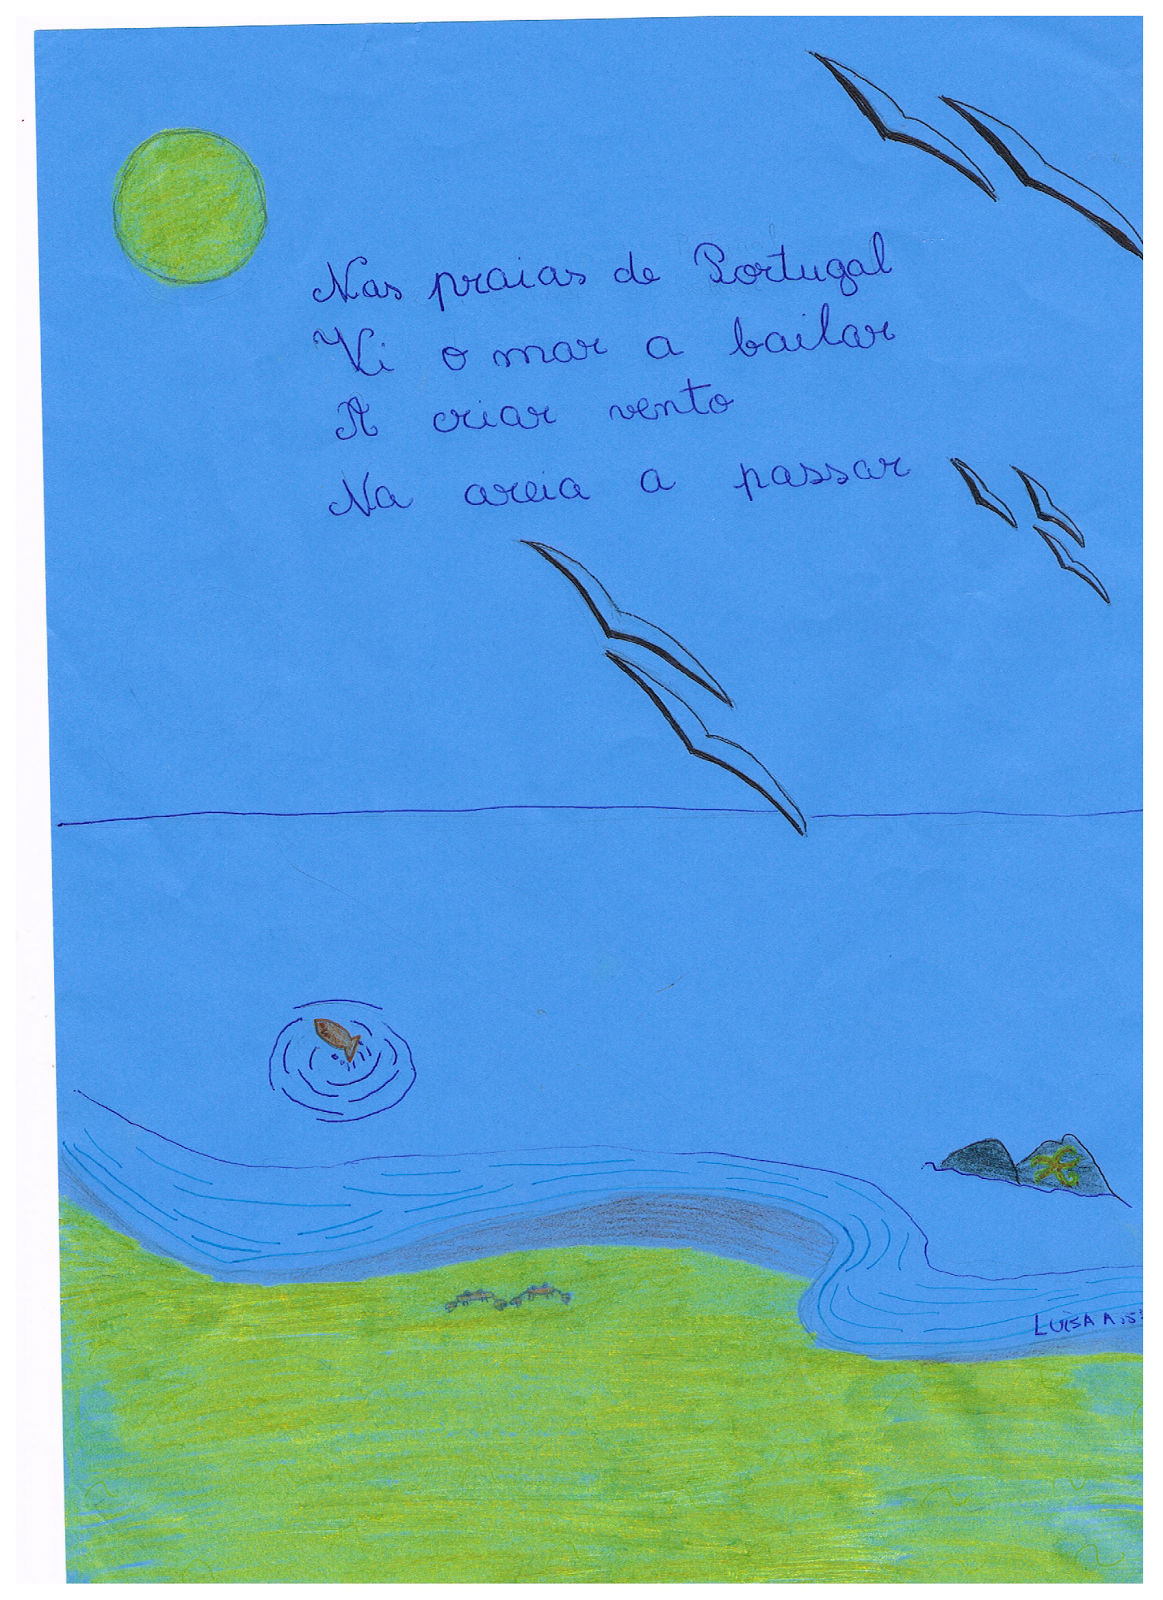 Nas praias de Portugal
Vi o mar a bailar
A criar vento
Na areia a passar
LUÍSA A.